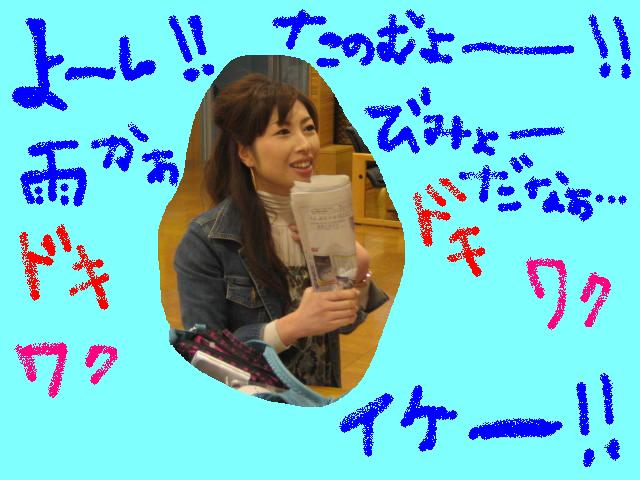 よーし!!
たのむよー!!
雨かぁ
びみょー
だなぁ…
ドキ
ドキ
ワク
ワク
イケー!!